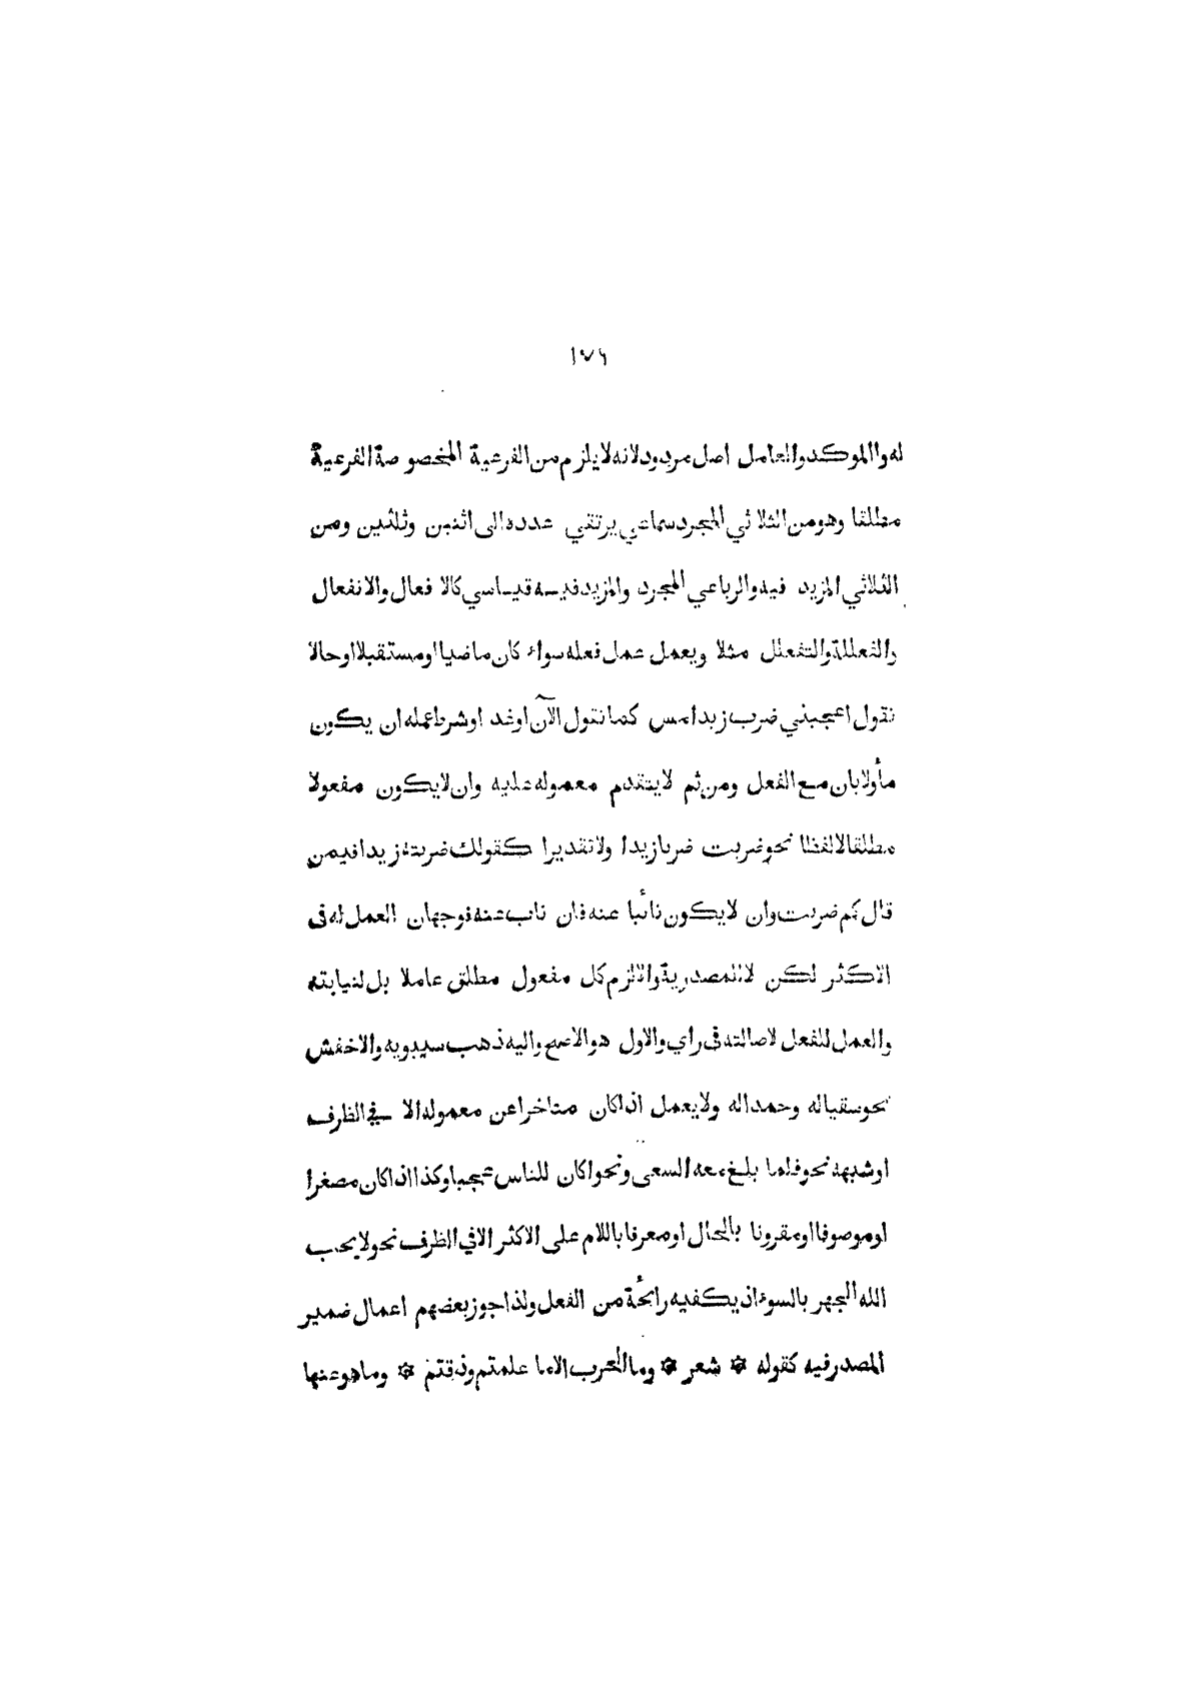 ١٧٦
له والموكد والعامل اصل مردود لانه لا يلزم من الفرعية المخصوصة الفرعية
مطلقا وهو من الثلاثي المجرد سماعي يرتقي عدده الى اثنين وثلثين ومن
الثلاثي المزيد فيه والرباعي المجرد والمزيد فيه قياسي كالافعال والانفعال
والفعللة والتفعلل مثلا ويعمل عمل فعله سواء كان ماضيا او مستقبلا او حالا
تقول اعجبني ضرب زيد امس كما تقول الآن او غد او شرط عمله ان يكون
مأولا بان مع الفعل ومن ثم لا يتقدم معموله عليه وان لا يكون مفعولا
مطلقا لا لفظا نحو ضربت ضربا زيدا ولا تقديرا كقولك ضربته زيدا فيمن
قال كم ضربت وان لا يكون نائبا عنه فان ناب عنه فوجهان العمل له فى
الاكثر لكن لا للمصدرية والا لزم كل مفعول مطلق عاملا بل لنيابته
والعمل للفعل لاصالته فى رأي والاول هو الاصح واليه ذهب سيبويه والاخفش
نحو سقيا له وحمدا له ولا يعمل اذا كان متاخرا عن معموله الا في الظرف
او شبهه نحو فلما بلغ معه السعى ونحو اكان للناس عجبا وكذا اذا كان مصغرا
او موصوفا او مقرونا بالحال او معرفا باللام على الاكثر الا في الظرف نحو لا يحب
الله الجهر بالسوء اذ يكفيه رائحة من الفعل ولذا جوز بعضهم اعمال ضمير
المصدر فيه كقوله * شعر * وما الحرب الا ما علمتم وذقتم * وما هو عنها